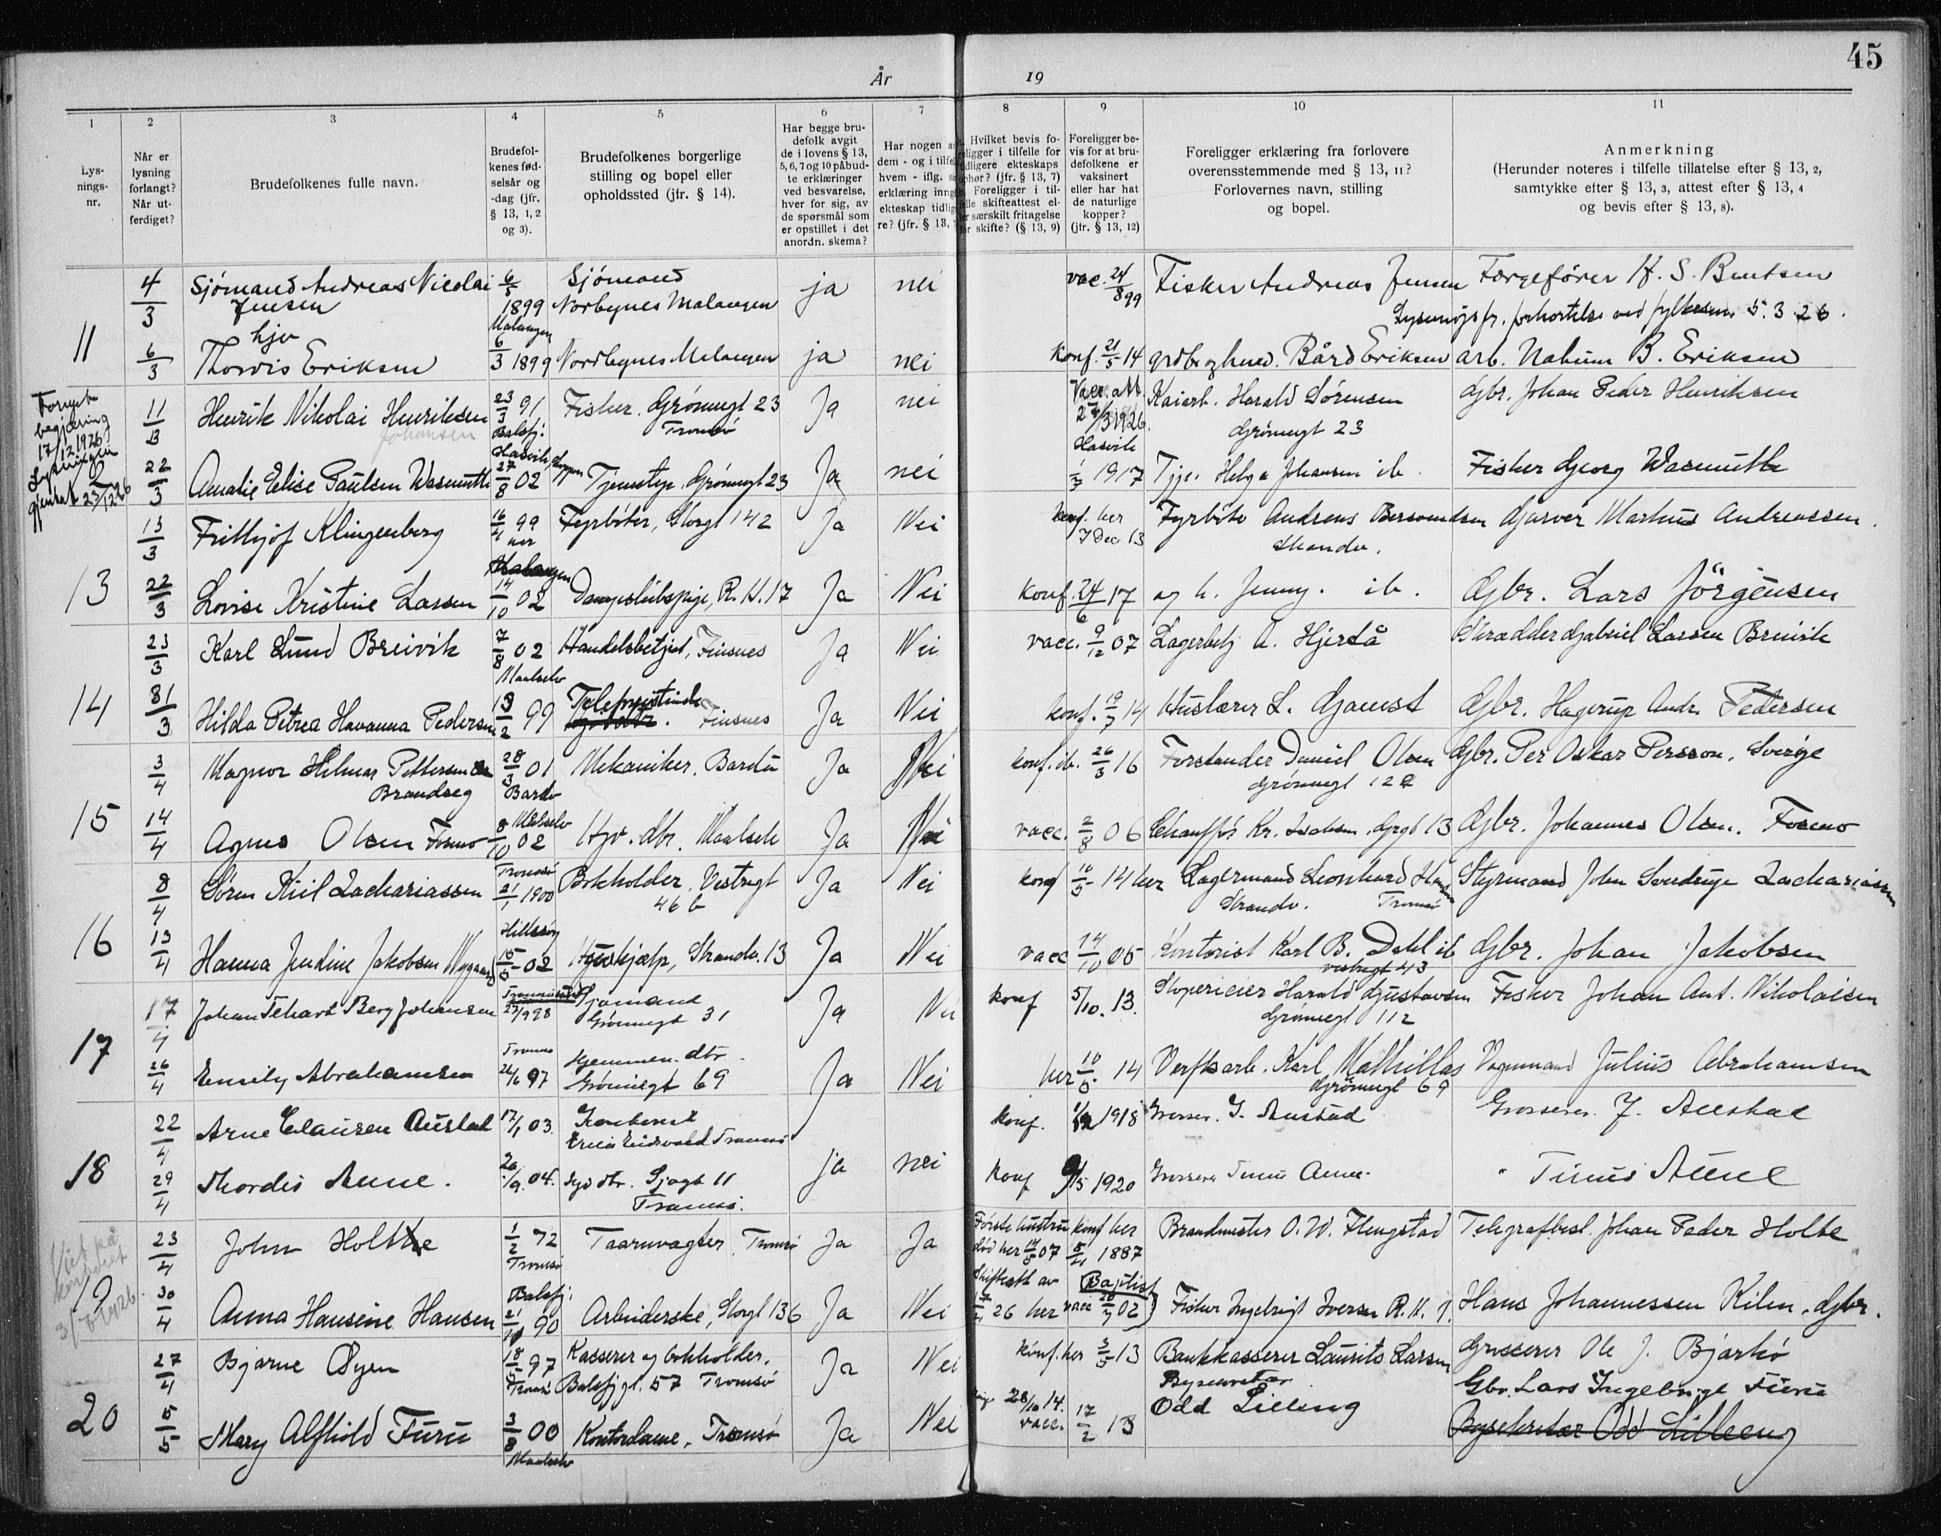 45
År 19
1 2 3 4 5 6 7 8 9 10 11
Lys-
nings-
nr.
Når er
lysning
forlangt?
Når ut-
ferdiget?
Brudefolkenes fulle navn.
Brudefol-
kenes fød-
selsår og
-dag (jfr.
§ 13, 1, 2
og 3).
Brudefolkenes borgerlige
stilling og bopel eller
opholdssted (jfr. § 14).
Har begge bru-
defolk avgit
de i lovens § 13,
5, 6, 7 og 10 påbud-
te erklæringer
ved besvarelse,
hver for sig, av
de spørsmål som
er opstillet i det
anordn. skema?
Har nogen
dem - og i
hvem - iflg.
erklæring
ekteskap
re? (jfr. § 13,
Hvilket bevis fo-
religger i tilfelle for
tidligere ekteskaps
ophør? (jfr. § 13, 7)
Foreligger i til-
felle skifteattest el-
ler særskilt fritagelse
for skifte? (§ 13, 9)
Foreligger be-
vis for at bru-
defolkene er
vaksinert
eller har hat
de naturlige
kopper?
(jfr. § 13, 12)
Foreligger erklæring fra forlovere
overensstemmende med § 13, 11?
Forlovernes navn, stilling
og bopel.
Anmerkning
(Herunder noteres i tilfelle tillatelse efter § 13, 2,
samtykke efter § 13, 3, attest efter § 13, 4
og bevis efter § 13, 8).
11
4/3 Sjømand Andreas Nicolai Jensen 6/5 1899 Malangen Sjømand Norbynes Malangen ja nei vac. 24/8 99 Fisker Andreas Jensen Færgefører H. S. Bentsen
5. 3. 26.
6/3 hjv Thorvis Eriksen 6/3 1899 Nordbynes Malangen ja nei konf. 21/5 14 Bård Eriksen arb. Nahum B. Eriksen
Fornyet
begjæring
17/12 1926
Lysningen
23/12 26
11/3 Henrik Nikolai Henriksen 23/3 91 Balsfj. Fisker. Grønnegt 23 Tromsø Ja nei Vacc. att. 1926. Kaiarb. Harald Sørensen Grønnegt 23 Gbr. Johan Peder Henriksen
Johansen
22/3 Amalie Elise Paulsen Wasmuth Hasvik 27/8 02 Tjenestpg. Grønnegt 23 Ja nei Hasvik 1917 Tjg. Helga Johansen ib. Fisker Georg Wasmuth
13
13/3 Frithjof Klingenberg 16/4 99 her Fyrbøter, Storgt 142 Ja Nei konf. her 7 Dec 13 Fyrbøte Andreas Berntsen Strandv. Gjørver Markus Andreassen.
22/3 Lovise Kristine Lassen Malangen 14/10 02 R. H. 17 Ja Nei konf. 24/6 17 og h. Jenny. ib. Gbr. Lars Jörgensen
14
23/3 Karl Lund Breivik 7/8 02 Maalselv Handelsbetjent, Finsnes Ja Nei vacc. 9/12 07 Lagerbetj A. Hjertå Skrædder Gabriel Lassen Breivik
31/3 Hilda Petrea Havanna Pedersen 13/2 99 Finsnes Ja Nei konf. 19/7 14 Huslærer L. Gjamst Gbr. Hagerup Andr. Pedersen
15
3/4 Magnor Hilmar Pettersen Brandseg 28/3 01 Bardo Mekaniker. Bardu Ja Nei konf. ib. 26/3 16 Forstander Daniel Olsen Grønnegt 122 Gbr. Per Oskar Persson, Sverige
14/4 Agnes Olsen Fosmo 8/10 02 Målselv Hjv. dtr. Maalselv Ja Nei vacc. 2/8 06 Chauffør Kr. Isaksen. 13 Gbr. Johannes Olsen. Fosmo
16
8/4 Søren Kiil Zachariassen Tromsø 21/1 1900 Bokholder. Vestregt 46 b Ja Nei konf 10/5 14 her Lagermand Leonhard Hansen Strandv. Tromsø Styrmand John Sverdrup Zachariassen
13/4 Hanna Jendine Jakobsen Nygaard Hillesøy 15/5 02 Hushjælp, Strandv. 13 Ja Nei vacc 14/10 05 Kontorist Karl B. Dahl ib Vestregt 43 Gbr. Johan Jakobsen
17
17/4 Johan Tehart Berg Johansen Tromsøsund Sjømand Grønnegt 31 Ja Nei konf 5/10. 13. Harald Gustavsen Grønnegt 112 Fisker Johan Ant. Nikolaisen
26/4 Emily Abrahamsen Tromsø 26/6 97 Hjemmev. dtr. Grønnegt 69 Ja Nei her 10/5. 14 Verftsarb. Karl Mathillas Grønnegt 69 Vognmand Julius Abrahamsen
18
22/4 Arne Clausen Austad 17/1 03. Tromsø konf. 1918 Grosser. J. Austad Grosserer. J. Austad
29/4 Thordis Aune. 04. Hjv dtr. Sjøgt 11 Tromsø. ja nei konf 9/5 1920 Grosserer Tinus Aune. " Tinus Aune
19
23/4 John Holthe 1/2 72 Tromsø Taarnvagter, Tromsø Ja Ja Første hustru død her 14/5 07 konf her 1887 Brandmester O. W. Flengstad Telegrafbest. Johan Peder Holte
30/4 Anna Hansine Hansen Balsfj. 21/10 90 Arbeiderske, Storgt 136 Ja Nei Skifteatt av 26 her (Baptist) vacc 02 Fisker Ingebrigt Iversen R. H. 7. Hans Johannessen Kiln. Gbr.
20
27/4 Bjarne Øyen 18/5 97 Tromsø Kasserer og bokholder, Balsfjgt. 57 Tromsø Ja Nei konf. her 3/5 13 Bankkasserer Laurits Larsen Grosserer Ole J. Bjarkø
5/5 Mary Alfhild Furu 3/8 00 Maalselv Kontordame, Tromsø Ja Nei 28/10 14. vacc. 17/2 13 Bysekretær Odd Lilleng Gbr. Lars Ingebrigt Furu
Bysekretær Odd Lilleeng